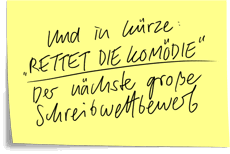 Und in kürze:
„RETTET DIE KOMÖDIE“
Der nächste große
Schreibwettbewerb